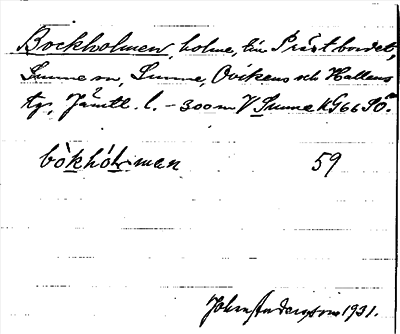 Bockholmen, holme, tin Prästbordet,
Sunne sn, Sunne, Ovikens och Hallens
tgs, Jämtl. l. – 300 m V Sunne k G66 SO.
bòkhól:man 59
John Anderson 1931.